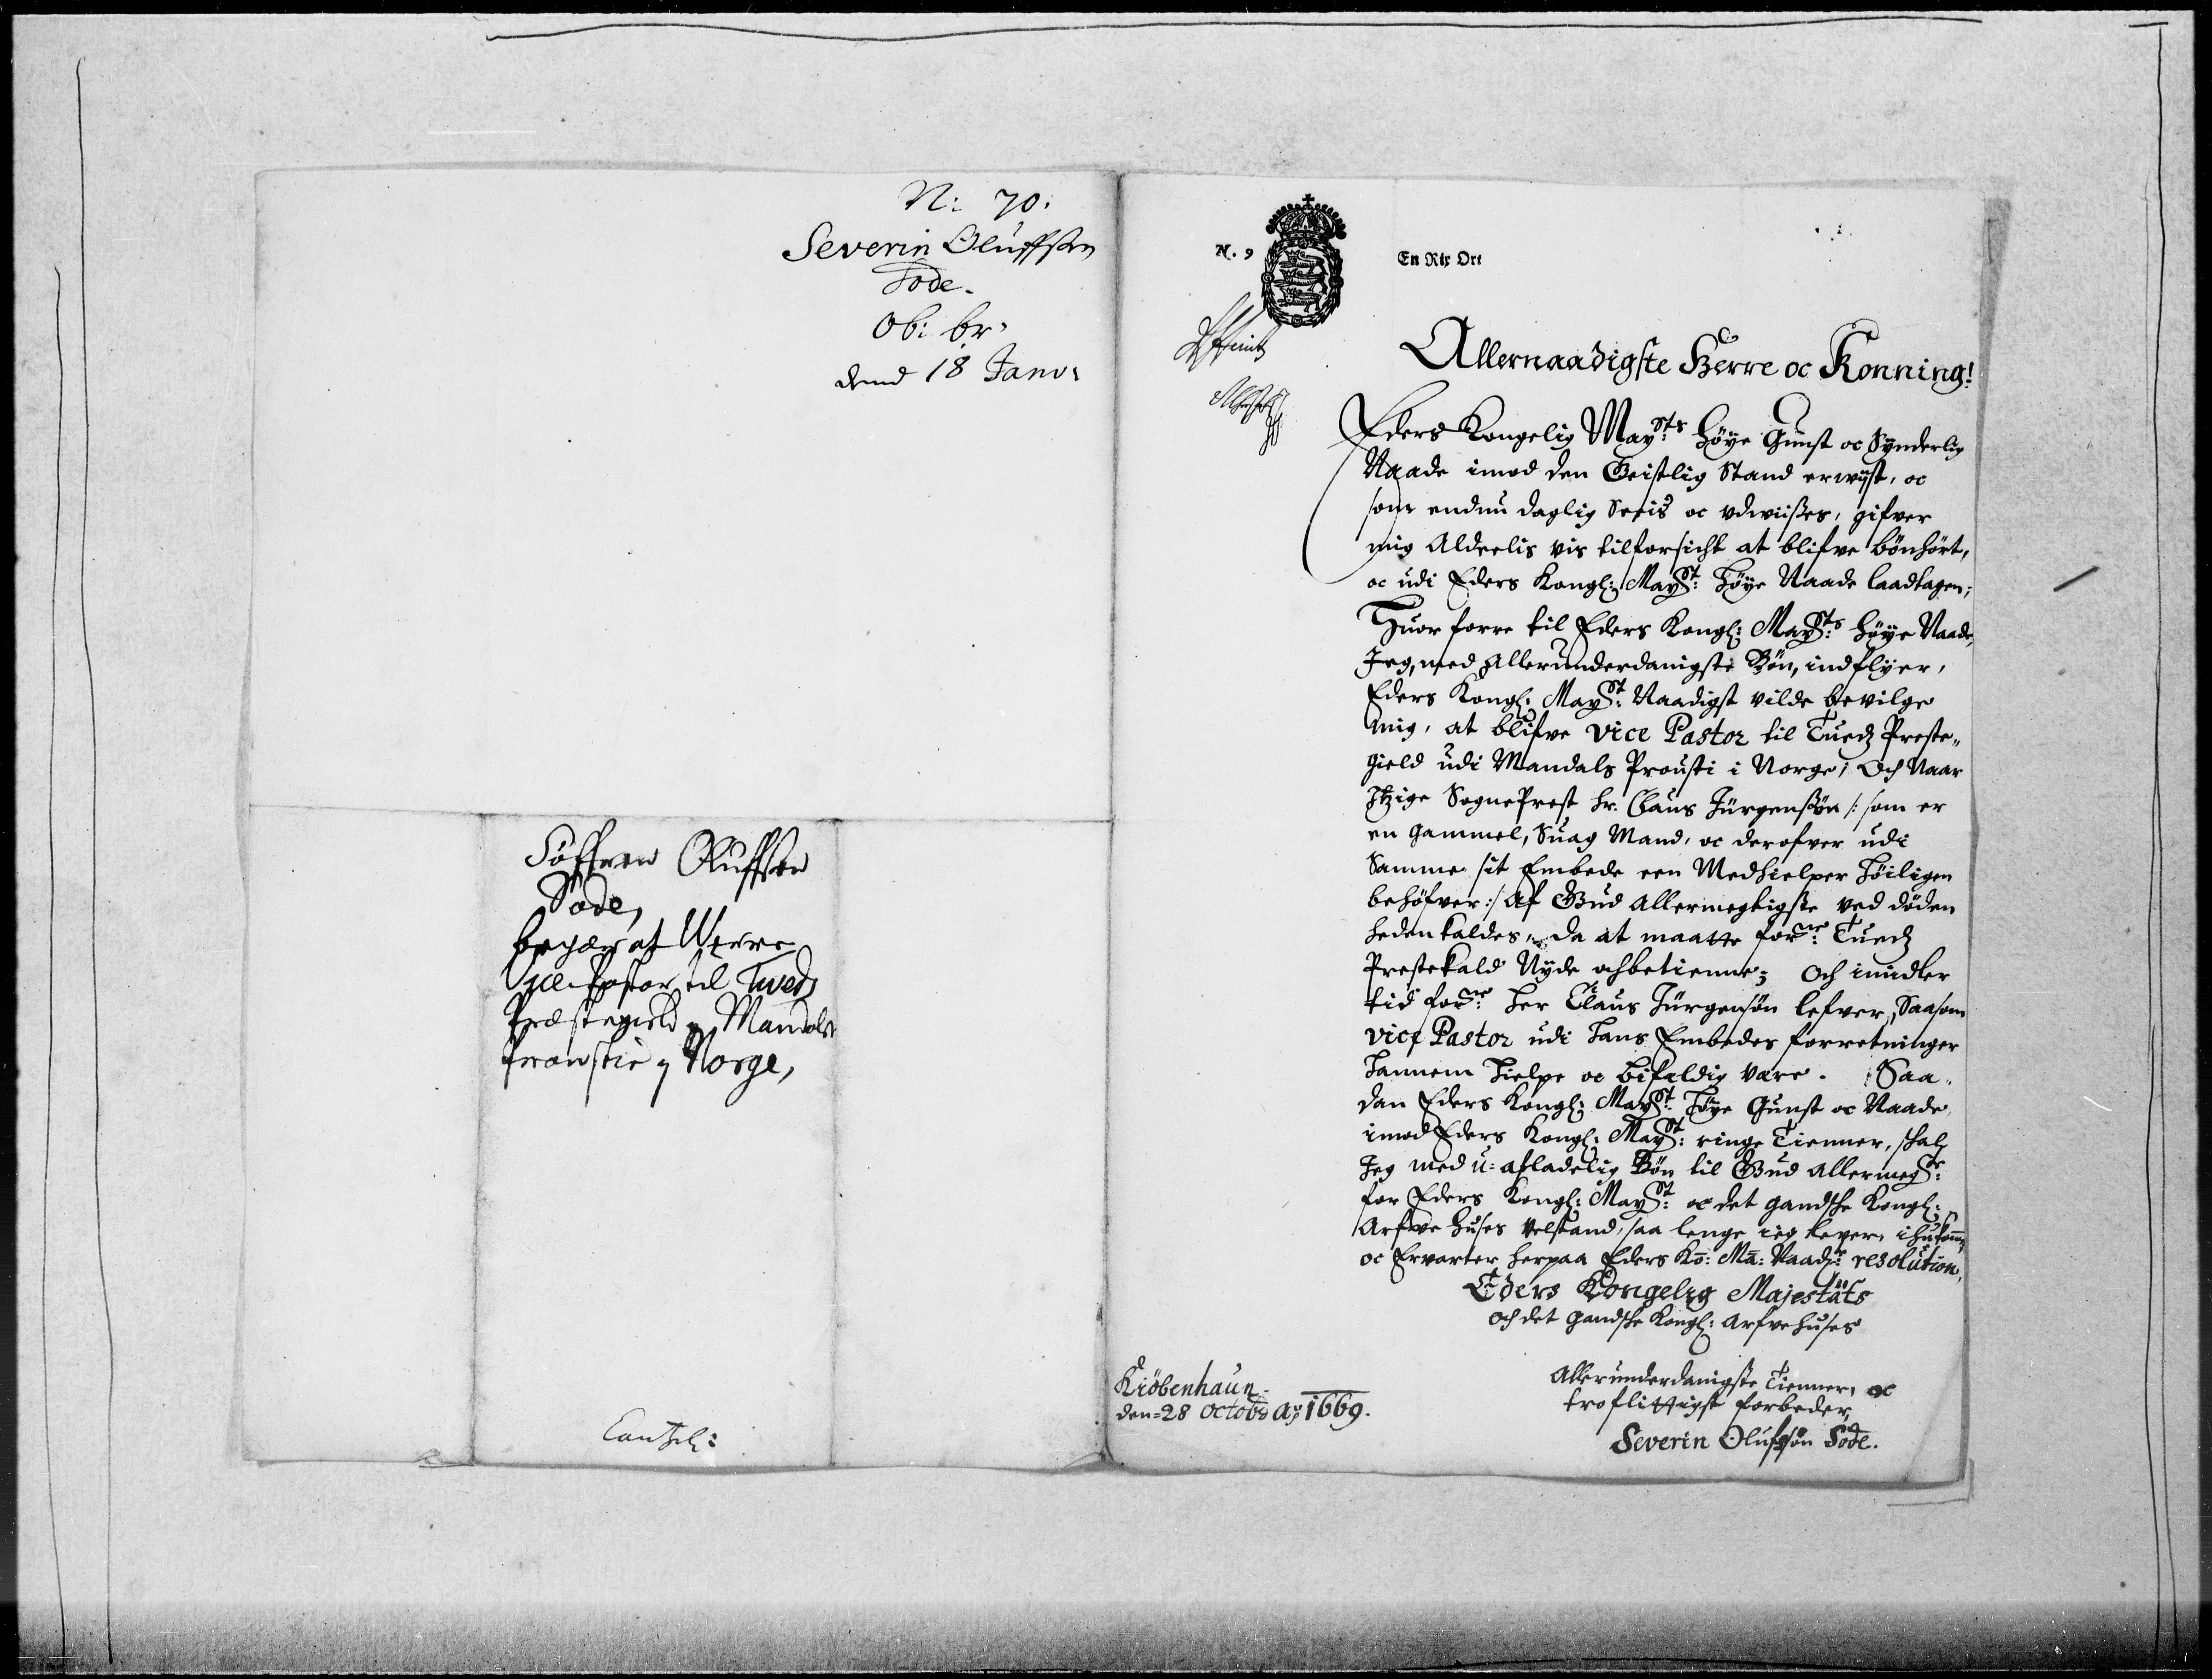 N: 70.
Severin Oluffsen
Sode.
Ob: br:
dend 18 Janv:
Söffren Oluffsen
Sode,
begær at Werre
Vice Pastor til Tweds
Præstegield y Mandals
Prowstie y Norge,
Cantzeli:
N. 9
En Rix Ort
Allernaadigste Herre oc Konning!
Eders Kongelig Maysts: höye Gunst oc Synderlig
Naade imod den Geistlig Stand erwijst, oc
som endnu daglig Seeis oc udwiißes, gifver
mig Aldeelis vis tilforsicht at blifve bönhört,
oc udi Eders Kongl: Mayst: höye Naade laadtagen;
Huor forre til Eders Kongl: Maysts: höye Naade,
Jeg, med allerunderdanigste Bön, indflyer,
Eders Kongl: Mayst: Naadigst vilde bevilge
mig, at blifve Vice Pastor til Tuedz Preste„
gield udi Mandals Prousti i Norge; Och Naar
Itzige SognePrest hr. Claus Jürgensön /: som er
en gammel, Suag Mand, oc derofver udi
Samme sit Embede een Medhielper höiligen
behöfver :/ Af Gud allermegtigste ved döden
heden kaldes, da at maatte forne: Tuedz
Prestekald Nyde och betienne; Och imidler
tid forne: her Claus Jürgensön lefver, Saasom
vice Pastor udi hans Embedes forretninger
hannem hielpe oc bifeldig være. Saa„
dan Eders Kongl: Mayst: höye Gunst oc Naade,
imod Eders Kongl: Mayst: ringe Tienner, skal
Jeg med u=afladelig Bön til Gud allermegte:
for Eders Kongl: Mayst: oc det gandske Kongl:
Arfve huses velstand, saa lenge ieg lever, ihukomme,
oc Ervarter herpaa Eders Ko: Ma: Naadge: resolution,
Eders Kongelig Majestäts
och det gandske Kongl: Arfvehuses
Allerunderdanigste Tienner, oc
troflittigst forbeder,
Severin Olufsön Sode.
Kiöbenhaun
den=28 Octobr Ao 1669.